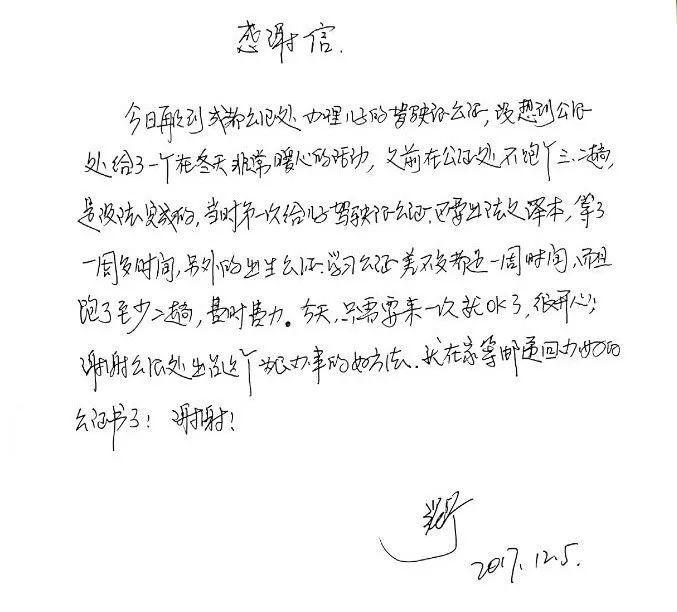 感谢信.
今日再次到成都公证处办理儿子的驾驶证公证,没想到公证
处给了一个在冬天非常暖心的活动,之前在公证处不跑个三、二趟,
是没法完成的,当时第一次给儿子驾驶证公证.还要出法文译本,等了
一周多时间,另外的出生公证.学习公证差不多都近一周时间,而且
跑了至少二趟,费时费力。今天,只需要来一次就OK了,很开心;
谢谢公证处出台这个为民办事的好方法.我在家等邮递回办好的
公证书了!谢谢!
2017.12.5.